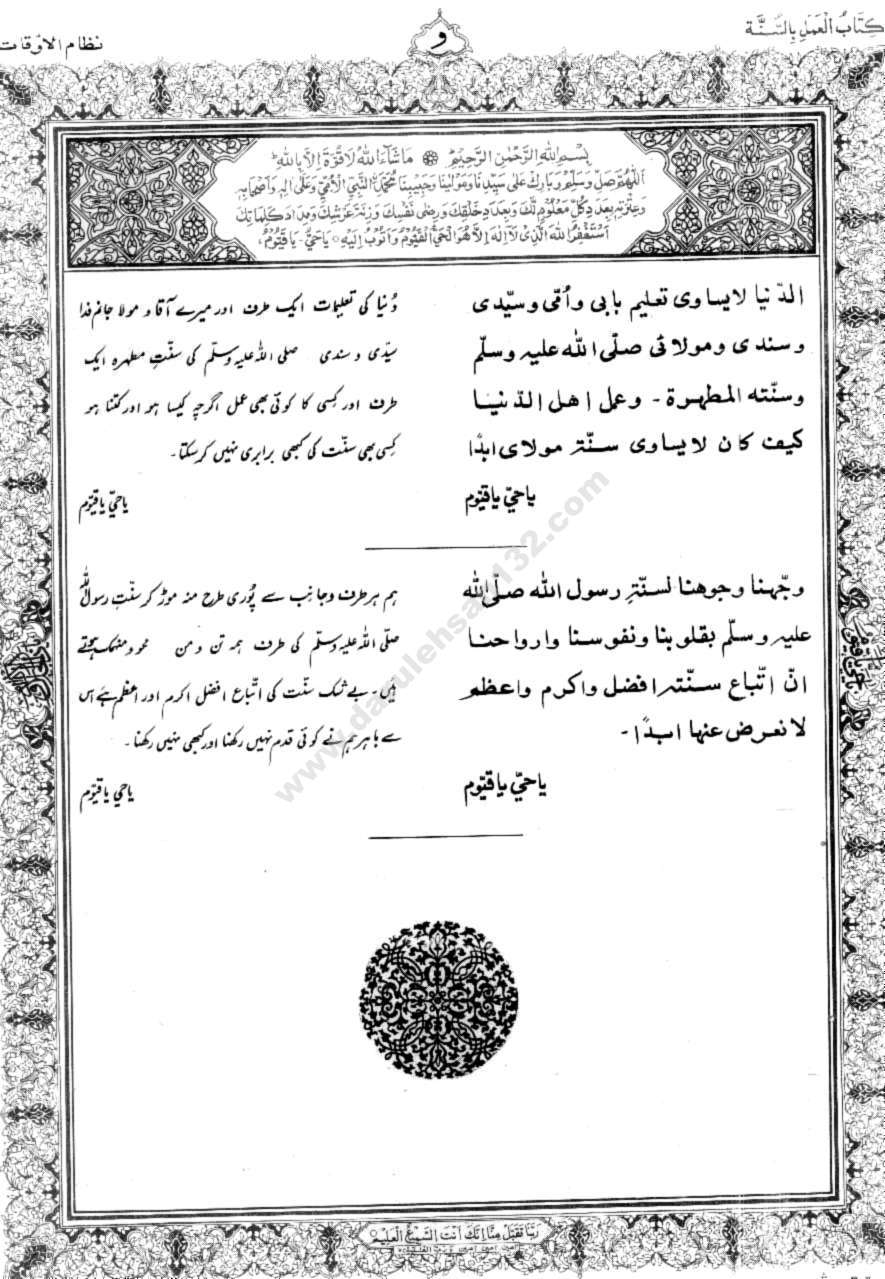 کتاب العمل بالسّنّة
و
نظام الاوقات
بسم الله الرحمن الرحیم ما شاء الله لا قوة الا بالله
اللهم صل وسلم وبارك على سیدنا ومولینا وحبیبنا محمد النبی الامی وعلى اله واصحابه
وعترته بعدد كل معلوم لك وبعدد خلقك ورضی نفسك وزنة عرشك ومداد كلماتك
استغفر الله الذی لا اله الا هو الحی القیوم واتوب الیه یاحی یاقیوم
الدّنیا لایساوی تعلیم بابی وأُمّی وسیّدی
وسندی ومولائی صلّی الله علیه وسلّم
وسنّته المطهرة - وعمل اهل الدّنیا
کیف کان لایساوی سنّة مولای ابدًا
یاحیّ یاقیّوم
دُنیا کی تعلیمات ایک طرف اور میرے آقا و مولا جانم فدا
سیّدی و سندی صلی اللہ علیہ وسلّم کی سنّتِ مطہرہ ایک
طرف اور کسی کا کوئی بھی عمل اگرچہ کیسا ہو اور کتنا ہو
کسی بھی سنّت کی کبھی برابری نہیں کرسکتا۔
یاحیّ یاقیّوم
وجّهنا وجوهنا لسنّة رسول الله صلّی الله
علیه وسلّم بقلوبنا ونفوسنا وارواحنا
انّ اتّباع سنّته افضل واکرم واعظم
لا نعرض عنها ابدًا -
یاحیّ یاقیّوم
ہم ہر طرف و جانب سے پُوری طرح منہ موڑ کر سنّتِ رسول اللہ
صلّی اللہ علیہ وسلّم کی طرف ہمہ تن و من محو و منہمک ہوتے
ہیں۔ بے شک سنّت کی اتّباع افضل اکرم اور اعظم ہے اس
سے باہر ہم نے کوئی قدم نہیں رکھنا اور کبھی نہیں رکھنا۔
یاحیّ یاقیّوم
ربنا تقبل منا انك انت السمیع العلیم
www.darulehsan132.com